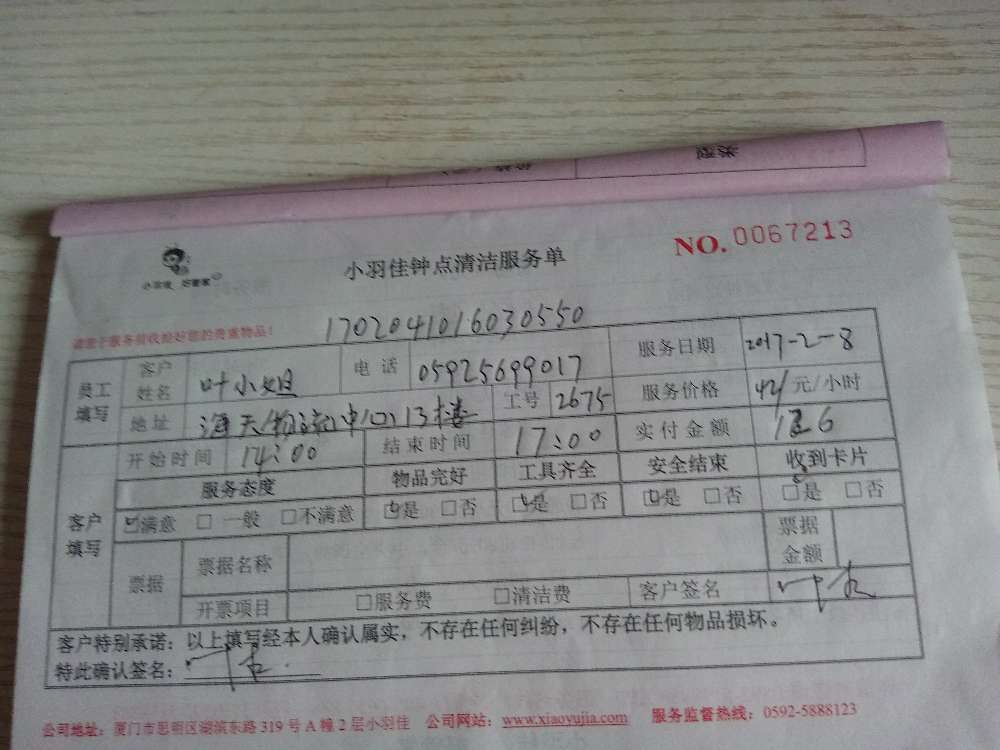 类型
小羽佳 好管家
小羽佳钟点清洁服务单
NO. 0067213
请您于服务前收拾好您的贵重物品!
1702041016030550
员工填写 客户姓名 叶小姐 电话 05925699017 服务日期 2017-2-8
地址 海天物流中心13楼 工号 2675 服务价格 42/ 元/小时
客户填写 开始时间 14:00 结束时间 17:00 实付金额 126
服务态度 物品完好 工具齐全 安全结束 收到卡片
☑满意 □一般 □不满意 ☑是 □否 ☑是 □否 ☑是 □否 ☑是 □否
票据 票据名称 票据金额
开票项目 □服务费 □清洁费 客户签名
客户特别承诺:以上填写经本人确认属实,不存在任何纠纷,不存在任何物品损坏。
特此确认签名:
公司地址:厦门市思明区湖滨东路 319 号 A 幢 2 层小羽佳 公司网站:www.xiaoyujia.com 服务监督热线:0592-5888123